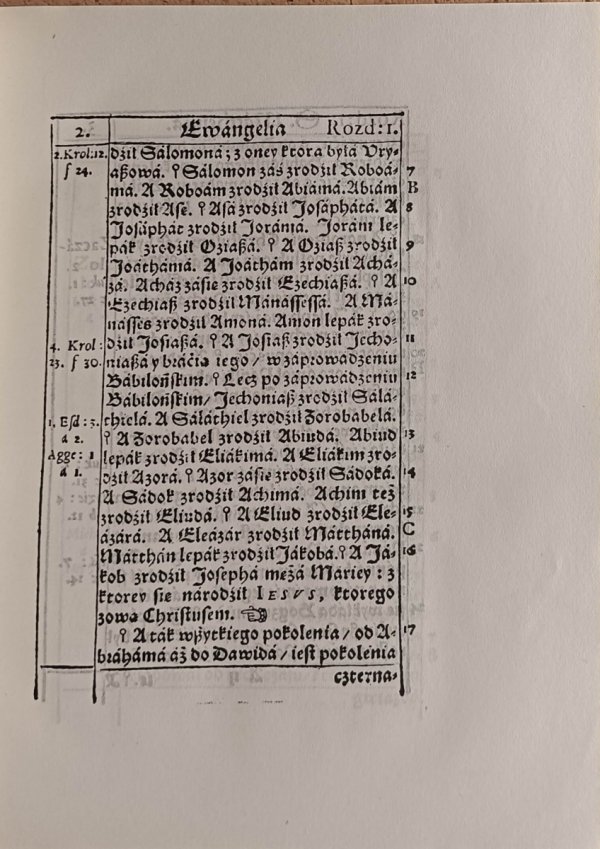 2. Ewángelia Rozd:1.
2.Krol:12. dźił Sálomoná; z oney ktora byłá Vry-
ſ 24. áßowá. ⸿ Sálomon záś zrodźił Roboá- 7
má. A Roboám zrodźił Abiámá. Abiám B
zrodźił Aſę. ⸿ Aſá zrodźił Joſápháta. A 8
Joſáphát zrodźił Joramá. Joram le-
pák zrodźił Oziaßá. ⸿ A Oziaß zrodźił 9
Joáthámá. A Joáthám zrodźił Achá-
zá. Acház záśie zrodźił Ezechiaßá. ⸿ A 10
Ezechiaß zrodźił Mánáſſeſſá. A Má-
náſſes zrodźił Amoná. Amon lepák zro-
4. Krol: dźił Joſiaßá. ⸿ A Joſiaß zrodźił Jecho- 11
23. ſ 30. niaßá y bráćia iego / w záprowádzeniu
Bábilońſkim. ⸿ Lecz po záprowádzeniu 12
Bábilońſkim / Jechoniaß zrodźił Sálá-
1. Eſd: 3. thielá. A Sáláthiel zrodźił Zorobabelá.
á 2. ⸿ A Zorobabel zrodźił Abiudá. Abiud 13
Agge: 1 lepák zrodźił Eliákimá. A Eliákim zro-
á 1. dźił Azorá. ⸿ Azor záśie zrodźił Sádoká. 14
A Sádok zrodźił Achimá. Achim też
zrodźił Eliudá. ⸿ A Eliud zrodźił Ele- 15
ázárá. A Eleázár zrodźił Máttháná. C
Mátthán lepák zrodźił Jákobá. ⸿ A Já- 16
kob zrodźił Joſephá mężá Máriey: z
ktorey śię národźił IESVS, ktorego
zową Chriſtuſem. ☜
⸿ A ták wßytkiego pokolenia / od A- 17
bráhámá áż do Dawidá / ieſt pokolenia
czterna-